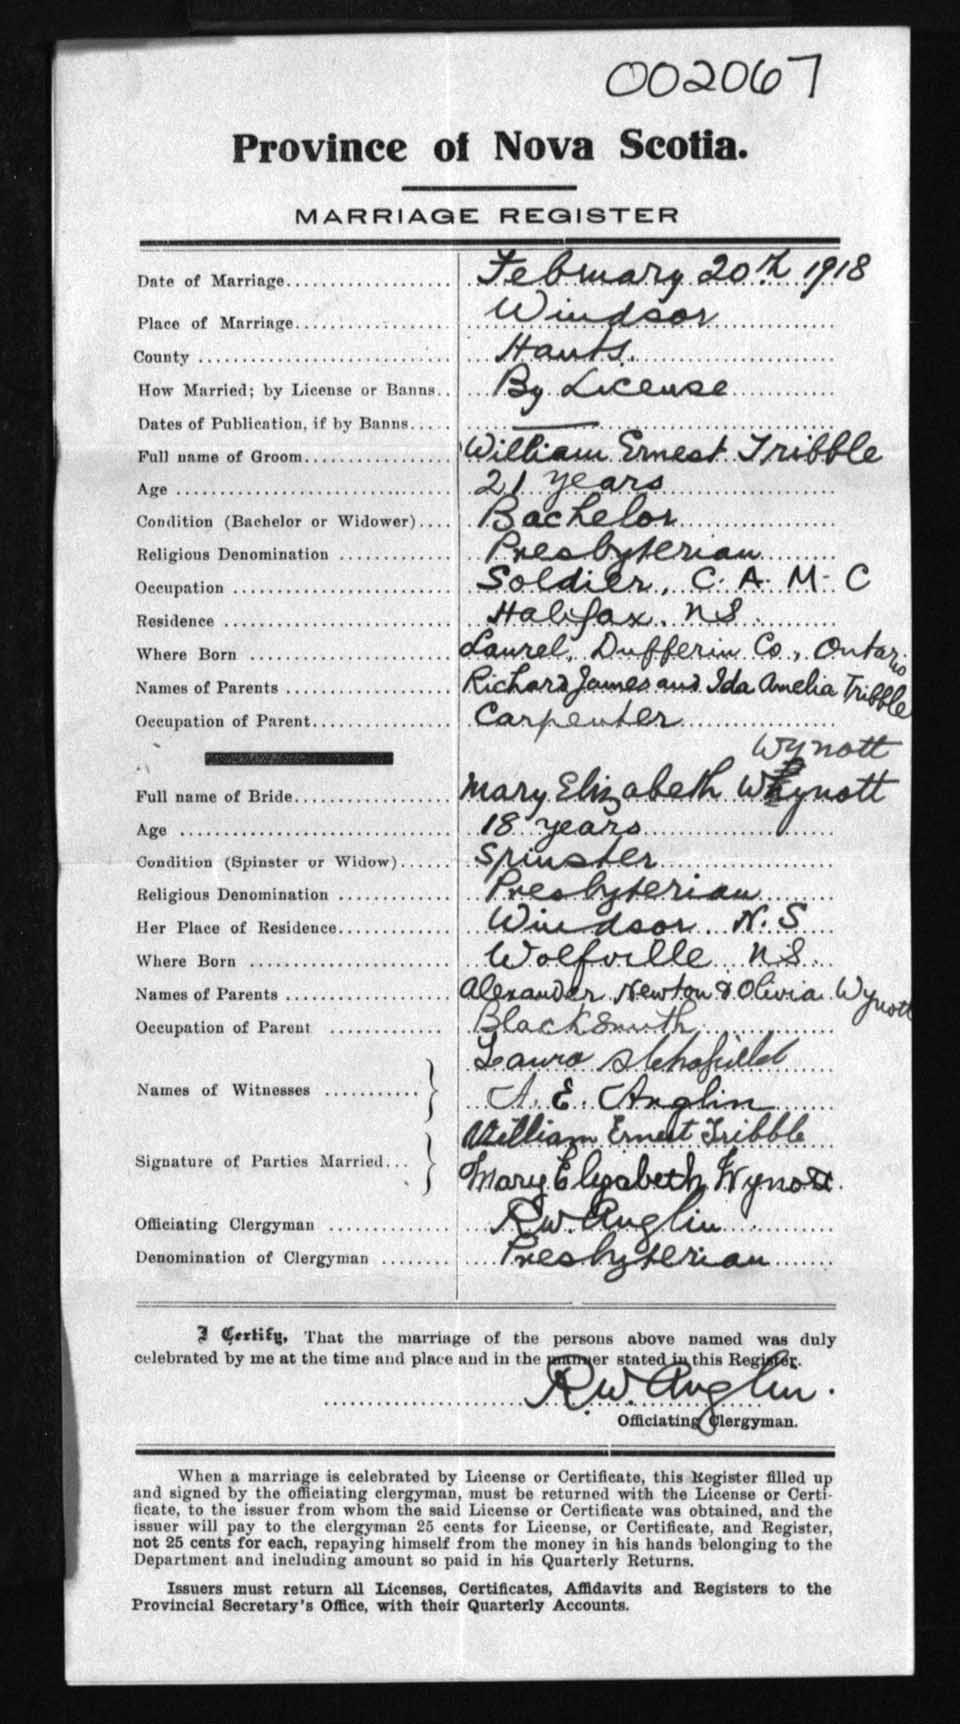 002067
Province of Nova Scotia.
MARRIAGE REGISTER
Date of Marriage February 20th 1918
Place of Marriage Windsor
County Hants.
How Married; by License or Banns By License
Dates of Publication, if by Banns —
Full name of Groom William Ernest Tribble
Age 21 years
Condition (Bachelor or Widower) Bachelor
Religious Denomination Presbyterian
Occupation Soldier, C. A. M. C
Residence Halifax. N.S.
Where Born Laurel, Dufferin Co., Ontario
Names of Parents Richard James and Ida Amelia Tribble
Occupation of Parent Carpenter
Wynott
Full name of Bride Mary Elizabeth Whynott
Age 18 years
Condition (Spinster or Widow) Spinster
Religious Denomination Presbyterian
Her Place of Residence Windsor N.S
Where Born Wolfville N.S.
Names of Parents Alexander Newton & Olivia Wynott
Occupation of Parent Blacksmith
Names of Witnesses Laura Schofield
A. E. Anglin
Signature of Parties Married William Ernest Tribble
Mary Elizabeth Wynott.
Officiating Clergyman R.W. Anglin
Denomination of Clergyman Presbyterian
I Certify, That the marriage of the persons above named was duly
celebrated by me at the time and place and in the manner stated in this Register.
R.W. Anglin.
Officiating Clergyman.
When a marriage is celebrated by License or Certificate, this Register filled up
and signed by the officiating clergyman, must be returned with the License or Certi-
ficate, to the issuer from whom the said License or Certificate was obtained, and the
issuer will pay to the clergyman 25 cents for License, or Certificate, and Register,
not 25 cents for each, repaying himself from the money in his hands belonging to the
Department and including amount so paid in his Quarterly Returns.
Issuers must return all Licenses, Certificates, Affidavits and Registers to the
Provincial Secretary's Office, with their Quarterly Accounts.